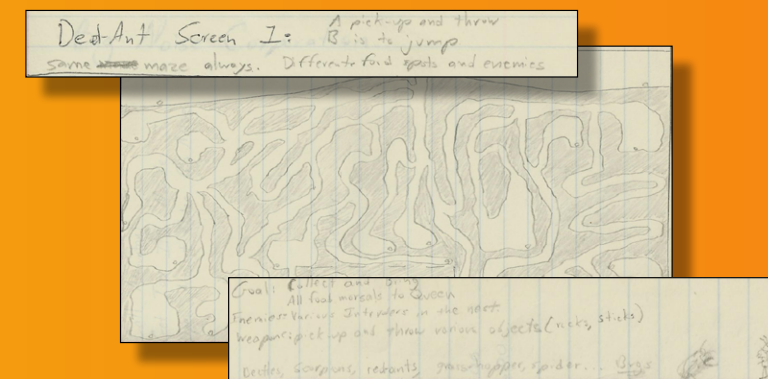 Deat-Ant Screen 1:
A pick-up and throw
B is to jump
same maze always. Different food spots and enemies
Goal: Collect and bring
All food morsels to Queen
Enemies: Various Intruders in the nest.
Weapons: pick-up and throw various objects (rocks, sticks)
Beetles, Scorpions, redants, grasshopper, spider... Bugs